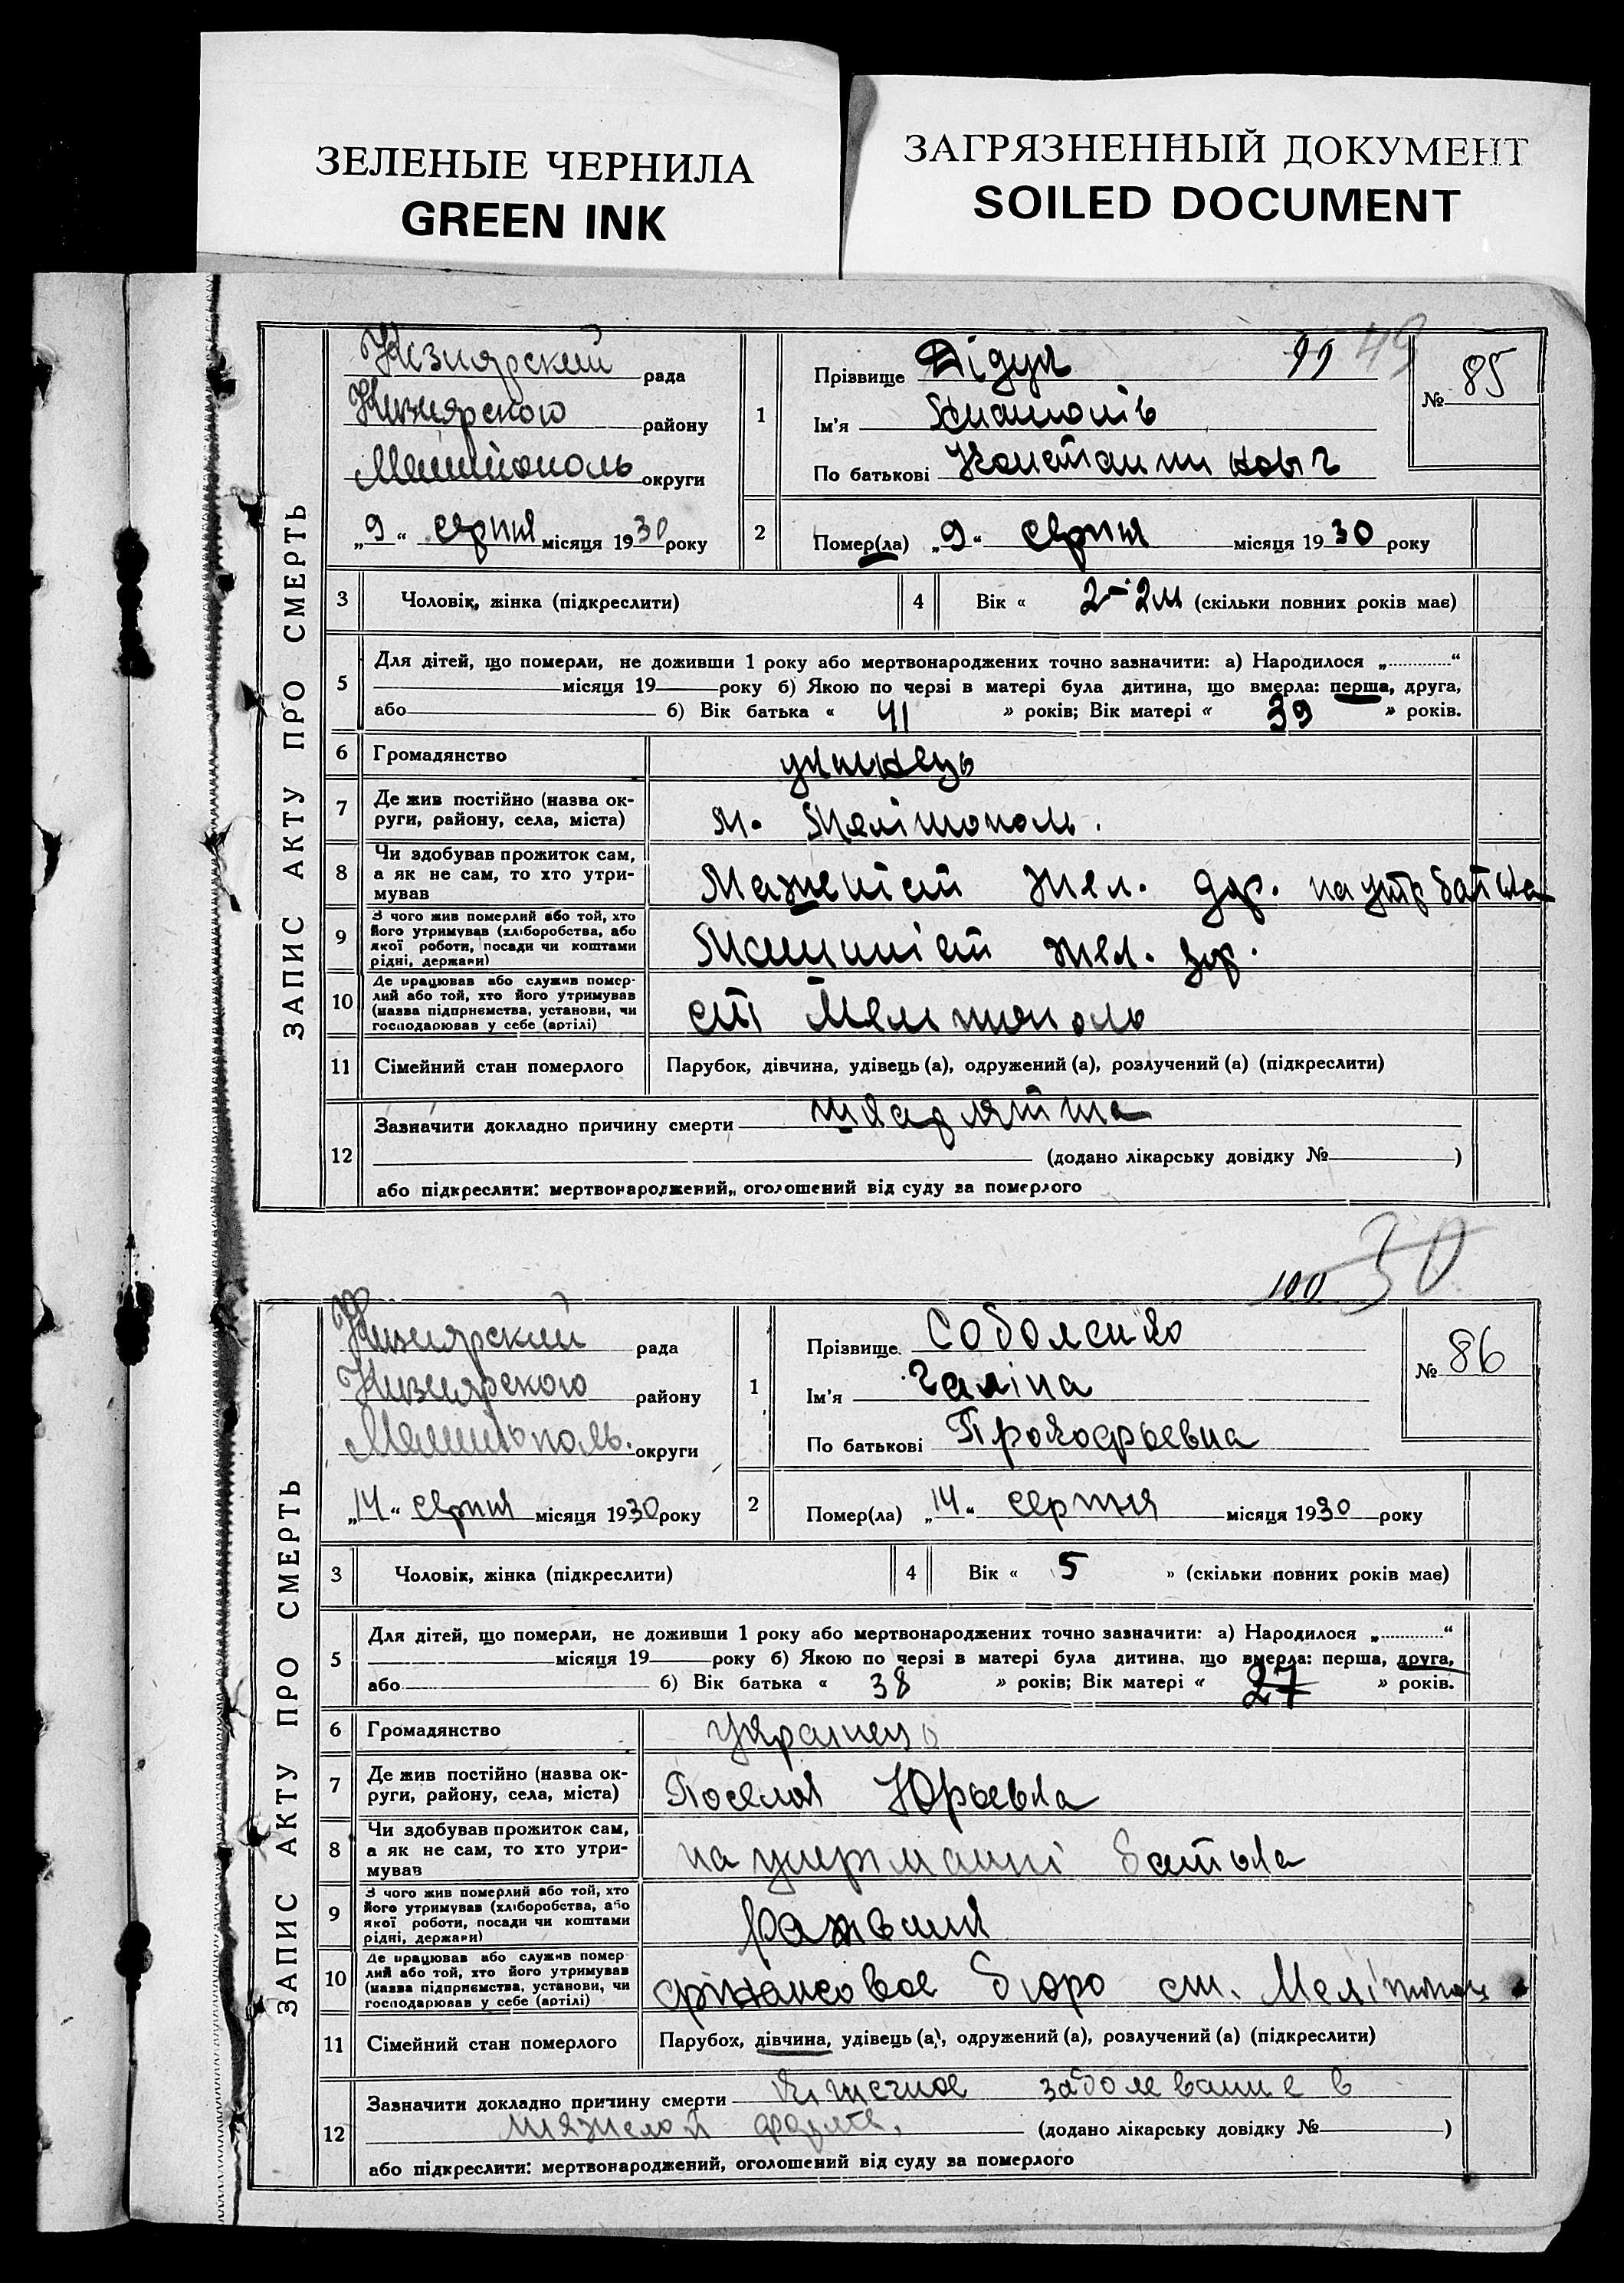 ЗЕЛЕНЫЕ ЧЕРНИЛА
GREEN INK
ЗАГРЯЗНЕННЫЙ ДОКУМЕНТ
SOILED DOCUMENT
ЗАПИС АКТУ ПРО СМЕРТЬ
Кизиярский рада
Кизиярского району
Мелитополь округи
„9“ серпня місяця 1930 року
99 49
№ 85
1 Прізвище Дідук
Ім'я
По батькові
2 Помер(ла) „9“ серпня місяця 1930 року
3 Чоловік, жінка (підкреслити)
4 Вік « 2-2м (скільки повних років має)
5 Для дітей, що померли, не доживши 1 року або мертвонароджених точно зазначити: а) Народилося „ “
місяця 19 року б) Якою по черзі в матері була дитина, що вмерла: перша, друга,
або б) Вік батька « 41 » років; Вік матері « 39 » років.
6 Громадянство
7 Де жив постійно (назва ок-
руги, району, села, міста) м. Мелітополь.
8 Чи здобував прожиток сам,
а як не сам, то хто утри-
мував Машиніст жел. дор. на утр батька
9 З чого жив померлий або той, хто
його утримував (хліборобства, або
якої роботи, посади чи коштами
рідні, держави) Машиніст жел. дор.
10 Де працював або служив помер-
лий або той, хто його утримував
(назва підприємства, установи, чи
господарював у себе (артілі) ст Мелитополь
11 Сімейний стан померлого Парубок, дівчина, удівець (а), одружений (а), розлучений (а) (підкреслити)
12 Зазначити докладно причину смерти
(додано лікарську довідку № )
або підкреслити: мертвонароджений, оголошений від суду за померлого
100 30
ЗАПИС АКТУ ПРО СМЕРТЬ
Кизиярский рада
Кизиярского району
Мелитополь. округи
„14“ серпня місяця 1930 року
№ 86
1 Прізвище Соболенко
Ім'я Галіна
По батькові Прокофьевна
2 Помер(ла) „14“ серпня місяця 1930 року
3 Чоловік, жінка (підкреслити)
4 Вік « 5 » (скільки повних років має)
5 Для дітей, що померли, не доживши 1 року або мертвонароджених точно зазначити: а) Народилося „ “
місяця 19 року б) Якою по черзі в матері була дитина, що вмерла: перша, друга,
або б) Вік батька « 38 » років; Вік матері « 27 » років.
6 Громадянство украінець
7 Де жив постійно (назва ок-
руги, району, села, міста) Поселок Юрьевка
8 Чи здобував прожиток сам,
а як не сам, то хто утри-
мував на утерманні батька
9 З чого жив померлий або той, хто
його утримував (хліборобства, або
якої роботи, посади чи коштами
рідні, держави)
10 Де працював або служив помер-
лий або той, хто його утримував
(назва підприємства, установи, чи
господарював у себе (артілі) фінансовое бюро ст. Мелітополь
11 Сімейний стан померлого Парубок, дівчина, удівець (а), одружений (а), розлучений (а) (підкреслити)
12 Зазначити докладно причину смерти Кишечное заболевание в
тяжелой форме. (додано лікарську довідку № )
або підкреслити: мертвонароджений, оголошений від суду за померлого